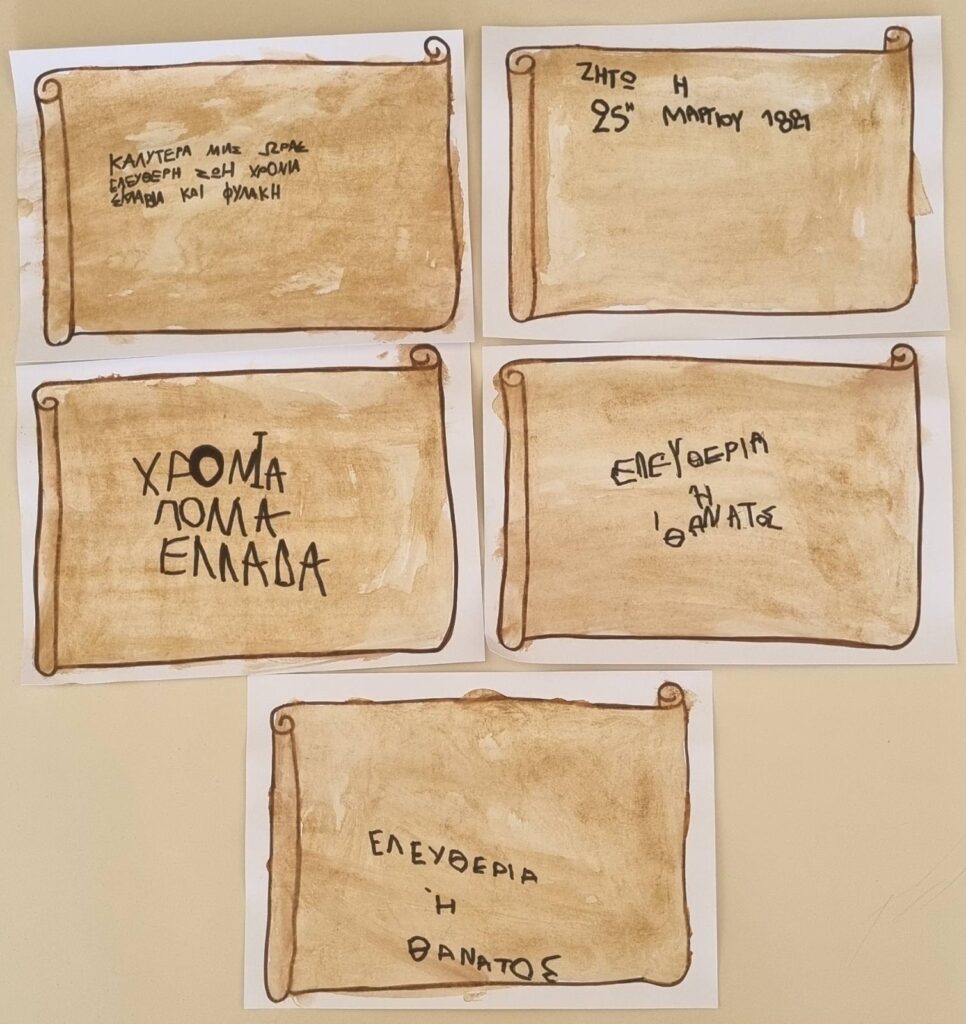 ΚΑΛΥΤΕΡΑ ΜΙΣ ΩΡΑΣ
ΕΛΕΥΘΕΡΗ ΖΩΗ ΧΡΟΝΙΑ
ΣΚΛΑΒΙΑ ΚΑΙ ΦΥΛΑΚΗ
ΖΗΤΩ Η
25η ΜΑΡΤΙΟΥ 1821
ΧΡΟΝΙΑ
ΠΟΛΛΑ
ΕΛΛΑΔΑ
ΕΛΕΥΘΕΡΙΑ
Ή
ΘΑΝΑΤΟΣ
ΕΛΕΥΘΕΡΙΑ
Ή
ΘΑΝΑΤΟΣ